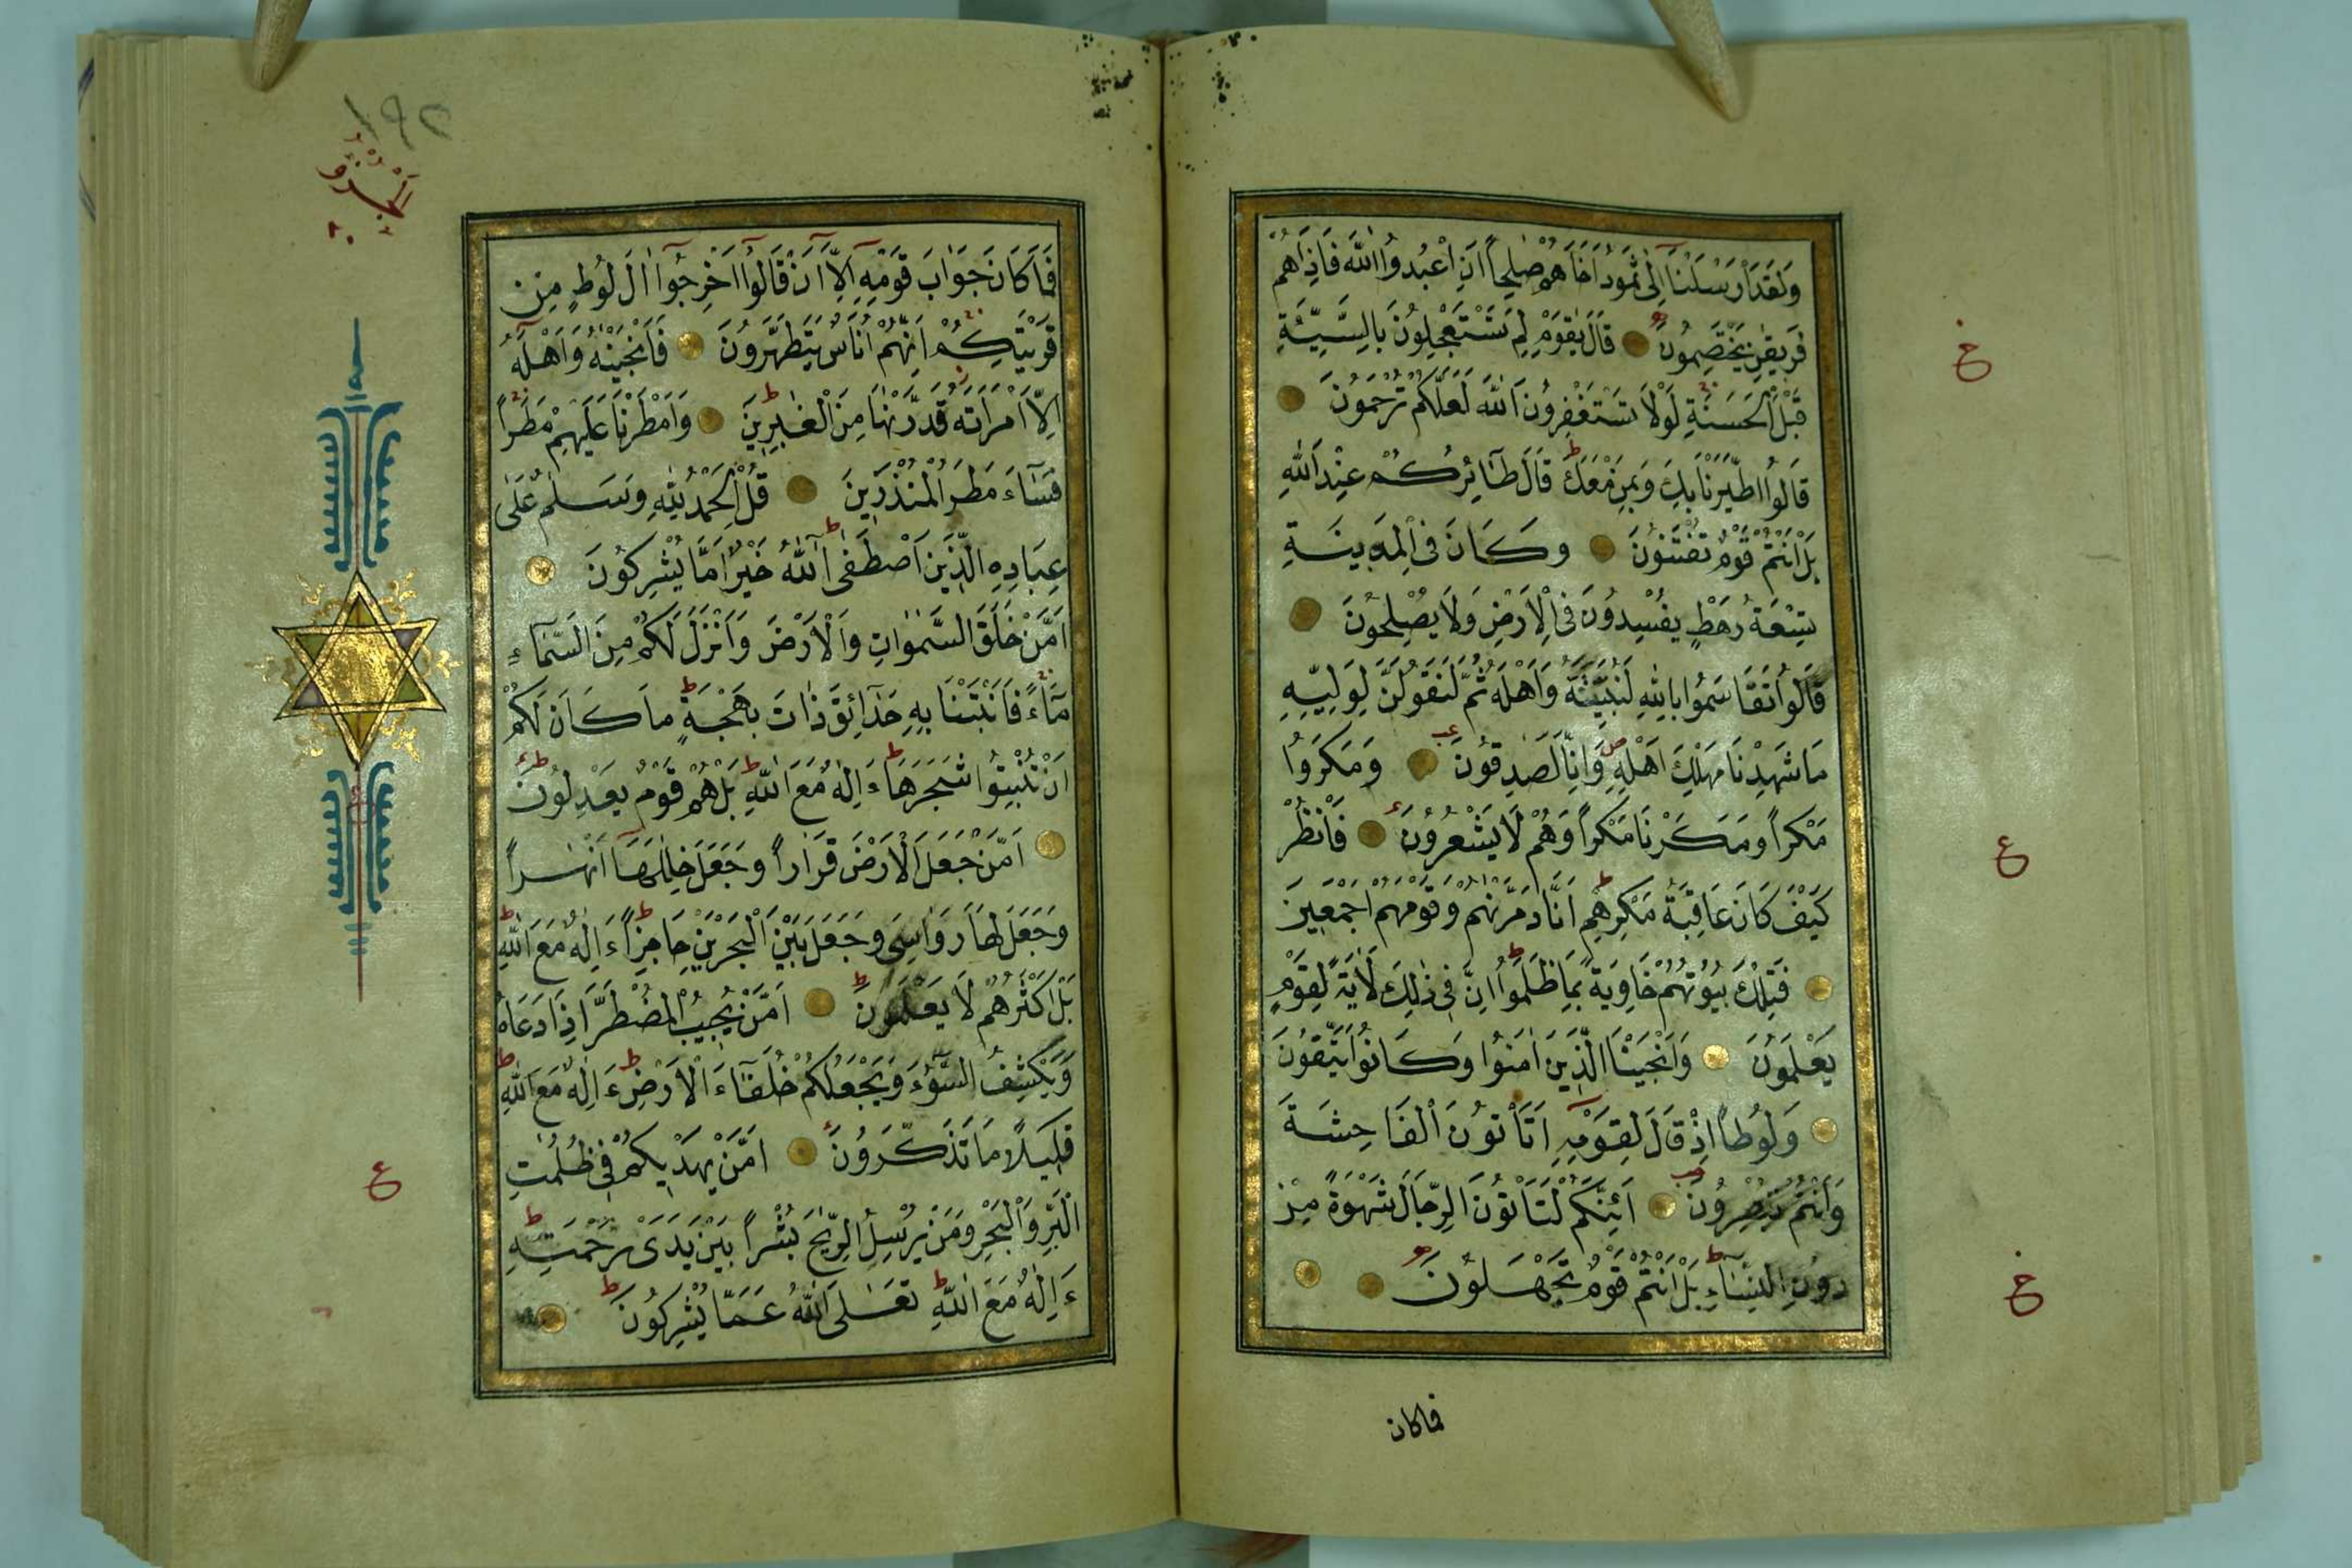 وَلَقَدْ اَرْسَلْنَا اِلٰى ثَمُودَ اَخَاهُمْ صٰلِحاً اَنِ اعْبُدُوا اللّٰهَ فَاِذَا هُمْ
فَرِيقٰنِ يَخْتَصِمُونَ قَالَ يٰقَوْمِ لِمَ تَسْتَعْجِلُونَ بِالسَّيِّئَةِ
قَبْلَ الْحَسَنَةِ لَوْلَا تَسْتَغْفِرُونَ اللّٰهَ لَعَلَّكُمْ تُرْحَمُونَ
قَالُوا اطَّيَّرْنَا بِكَ وَبِمَنْ مَعَكَ قَالَ طَآئِرُكُمْ عِنْدَ اللّٰهِ
بَلْ اَنْتُمْ قَوْمٌ تُفْتَنُونَ وَكَانَ فِى الْمَدِينَةِ
تِسْعَةُ رَهْطٍ يُفْسِدُونَ فِى الْاَرْضِ وَلَا يُصْلِحُونَ
قَالُوا تَقَاسَمُوا بِاللّٰهِ لَنُبَيِّتَنَّهُ وَاَهْلَهُ ثُمَّ لَنَقُولَنَّ لِوَلِيِّهِ
مَا شَهِدْنَا مَهْلِكَ اَهْلِهِ وَاِنَّا لَصٰدِقُونَ وَمَكَرُوا
مَكْراً وَمَكَرْنَا مَكْراً وَهُمْ لَا يَشْعُرُونَ فَانْظُرْ
كَيْفَ كَانَ عَاقِبَةُ مَكْرِهِمْ اَنَّا دَمَّرْنٰهُمْ وَقَوْمَهُمْ اَجْمَعِينَ
فَتِلْكَ بُيُوتُهُمْ خَاوِيَةً بِمَا ظَلَمُوا اِنَّ فِى ذٰلِكَ لَاٰيَةً لِقَوْمٍ
يَعْلَمُونَ وَاَنْجَيْنَا الَّذِينَ اٰمَنُوا وَكَانُوا يَتَّقُونَ
وَلُوطاً اِذْ قَالَ لِقَوْمِهِ اَتَأْتُونَ الْفَاحِشَةَ
وَاَنْتُمْ تُبْصِرُونَ اَئِنَّكُمْ لَتَأْتُونَ الرِّجَالَ شَهْوَةً مِنْ
دُونِ النِّسَآءِ بَلْ اَنْتُمْ قَوْمٌ تَجْهَلُونَ
فماكان
ع
ع
ع
١٩٢
الجزؤ
٢٠
فَمَا كَانَ جَوَابَ قَوْمِهِ اِلَّا اَنْ قَالُوا اَخْرِجُوا اٰلَ لُوطٍ مِنْ
قَرْيَتِكُمْ اِنَّهُمْ اُنَاسٌ يَتَطَهَّرُونَ فَاَنْجَيْنٰهُ وَاَهْلَهُ
اِلَّا امْرَاَتَهُ قَدَّرْنٰهَا مِنَ الْغٰبِرِينَ وَاَمْطَرْنَا عَلَيْهِمْ مَطَراً
فَسَآءَ مَطَرُ الْمُنْذَرِينَ قُلِ الْحَمْدُ لِلّٰهِ وَسَلٰمٌ عَلٰى
عِبَادِهِ الَّذِينَ اصْطَفٰى آللّٰهُ خَيْرٌ اَمَّا يُشْرِكُونَ
اَمَّنْ خَلَقَ السَّمٰوَاتِ وَالْاَرْضَ وَاَنْزَلَ لَكُمْ مِنَ السَّمَآءِ
مَآءً فَاَنْبَتْنَا بِهِ حَدَآئِقَ ذَاتَ بَهْجَةٍ مَا كَانَ لَكُمْ
اَنْ تُنْبِتُوا شَجَرَهَا ءَاِلٰهٌ مَعَ اللّٰهِ بَلْ هُمْ قَوْمٌ يَعْدِلُونَ
اَمَّنْ جَعَلَ الْاَرْضَ قَرَاراً وَجَعَلَ خِلٰلَهَا اَنْهٰراً
وَجَعَلَ لَهَا رَوَاسِىَ وَجَعَلَ بَيْنَ الْبَحْرَيْنِ حَاجِزاً ءَاِلٰهٌ مَعَ اللّٰهِ
بَلْ اَكْثَرُهُمْ لَا يَعْلَمُونَ اَمَّنْ يُجِيبُ الْمُضْطَرَّ اِذَا دَعَاهُ
وَيَكْشِفُ السُّوءَ وَيَجْعَلُكُمْ خُلَفَآءَ الْاَرْضِ ءَاِلٰهٌ مَعَ اللّٰهِ
قَلِيلاً مَا تَذَكَّرُونَ اَمَّنْ يَهْدِيكُمْ فِى ظُلُمٰتِ
الْبَرِّ وَالْبَحْرِ وَمَنْ يُرْسِلُ الرِّيٰحَ بُشْراً بَيْنَ يَدَىْ رَحْمَتِهِ
ءَاِلٰهٌ مَعَ اللّٰهِ تَعٰلَى اللّٰهُ عَمَّا يُشْرِكُونَ
ع